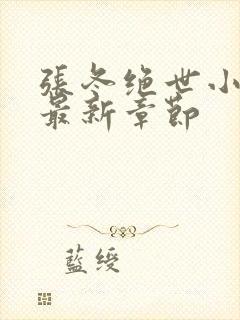 張冬绝世小
最新章節
藍绶